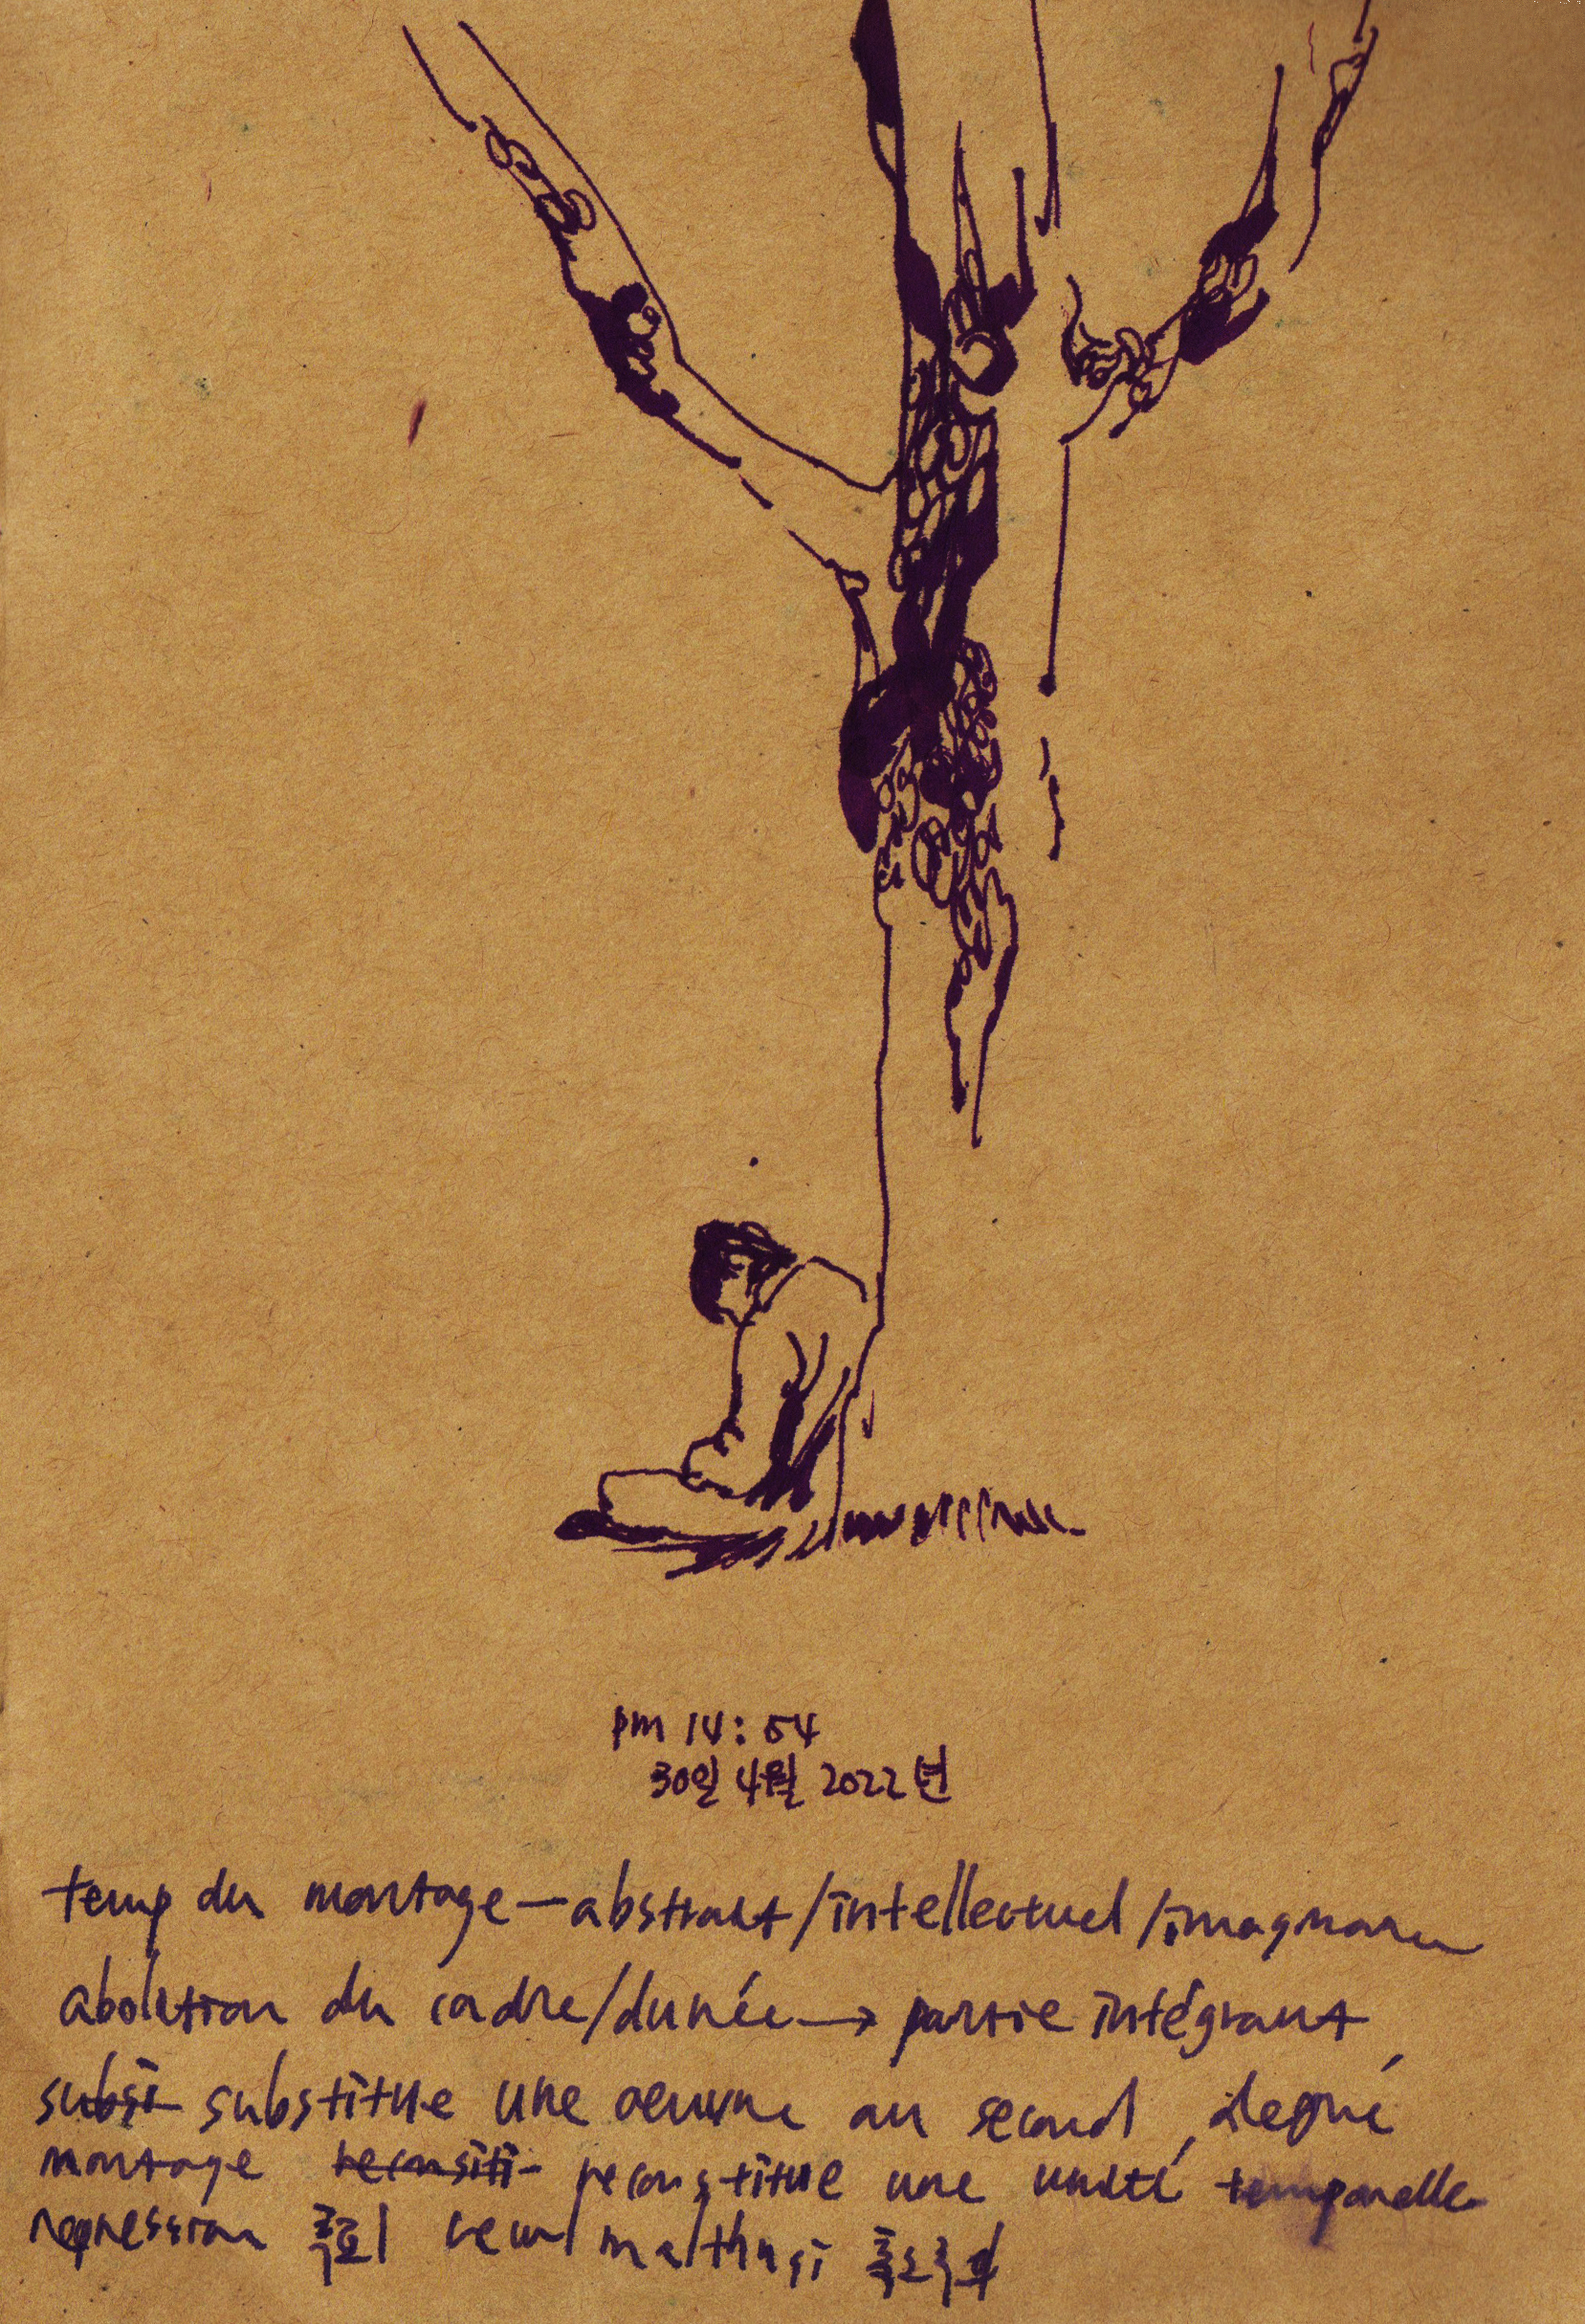 pm 14:54
30일 4월 2022년
temp du montage — abstrait/intellectuel/imaginaire
abolition du cadre/durée → partie intégrant
subsi substitue une oeuvre au second degré
montage reconsiti reconstitue une unité temporelle
regression